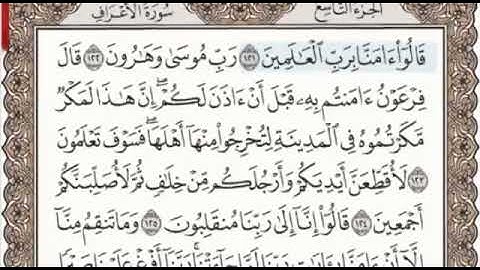 سُورَةُ الأَعْرَافِ الجُزْءُ التَّاسِعُ
قَالُوٓا۟ ءَامَنَّا بِرَبِّ ٱلْعَٰلَمِينَ ١٢١ رَبِّ مُوسَىٰ وَهَٰرُونَ ١٢٢ قَالَ
فِرْعَوْنُ ءَامَنتُم بِهِۦ قَبْلَ أَنْ ءَاذَنَ لَكُمْ ۖ إِنَّ هَٰذَا لَمَكْرٌ
مَّكَرْتُمُوهُ فِى ٱلْمَدِينَةِ لِتُخْرِجُوا۟ مِنْهَآ أَهْلَهَا ۖ فَسَوْفَ تَعْلَمُونَ
١٢٣ لَأُقَطِّعَنَّ أَيْدِيَكُمْ وَأَرْجُلَكُم مِّنْ خِلَٰفٍ ثُمَّ لَأُصَلِّبَنَّكُمْ
أَجْمَعِينَ ١٢٤ قَالُوٓا۟ إِنَّآ إِلَىٰ رَبِّنَا مُنقَلِبُونَ ١٢٥ وَمَا تَنقِمُ مِنَّآ